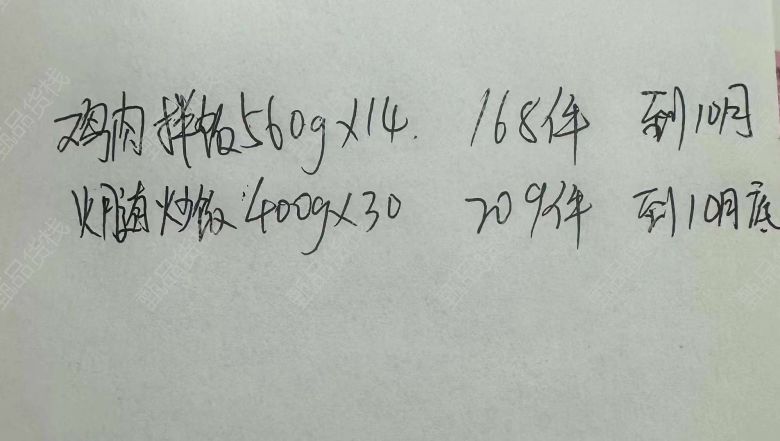 鸡肉拌饭560g×14. 168件 到10月
火腩炒饭400g×30 209件 到10月底
甄品货栈